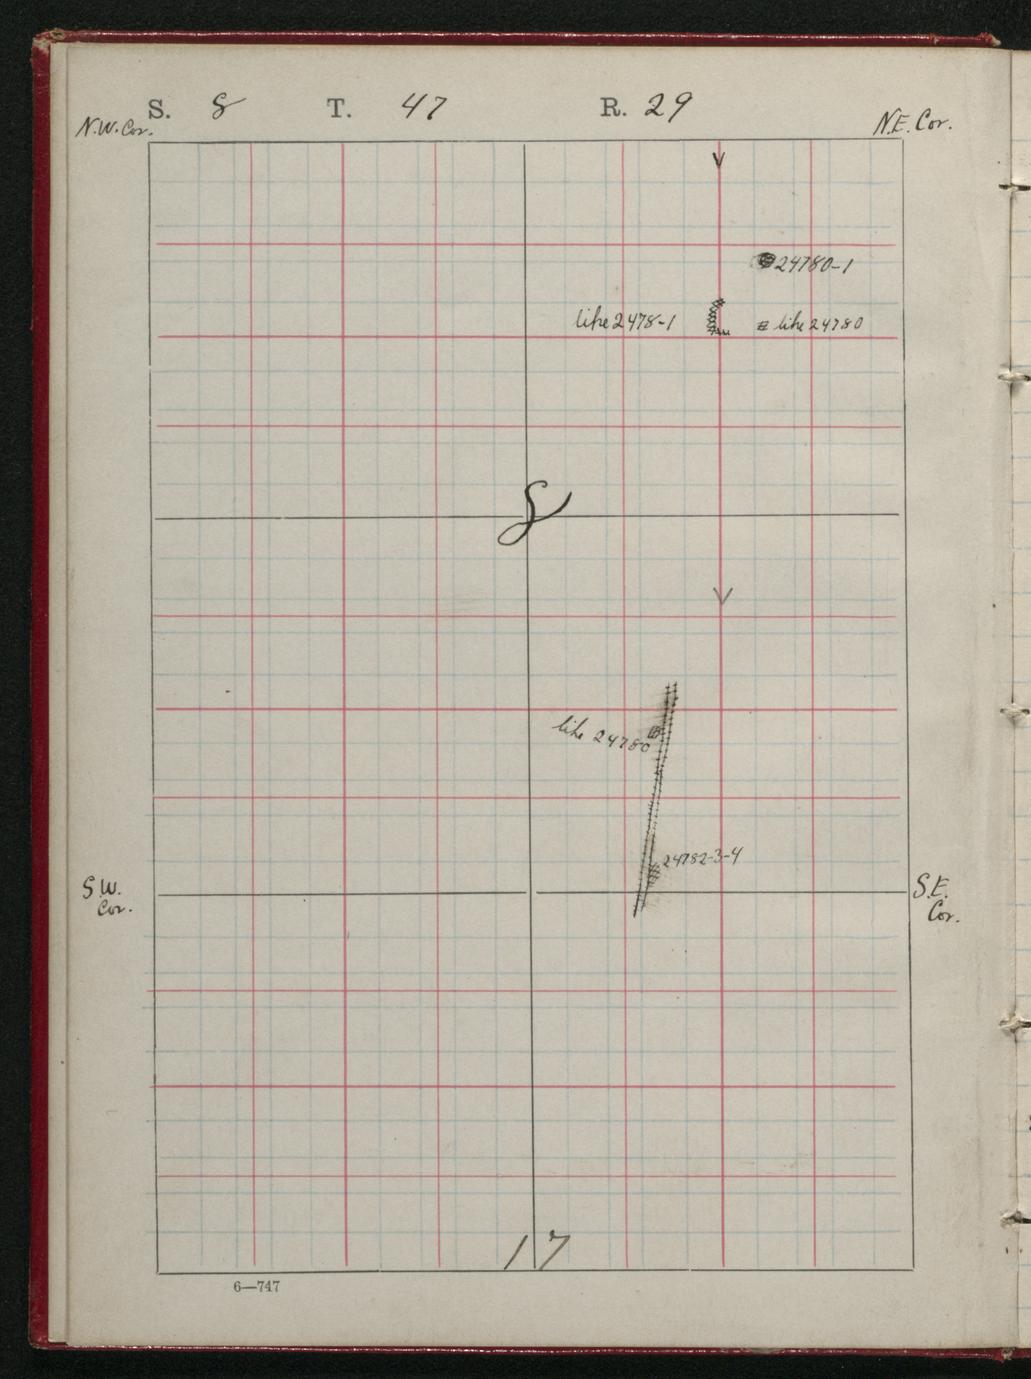 S. 8 T. 47 R. 29
N.W. Cor. N.E. Cor.
24780-1
like 2478-1 like 24780
8
like 24780
24782-3-4
S.W. Cor. S.E. Cor.
17
6—747